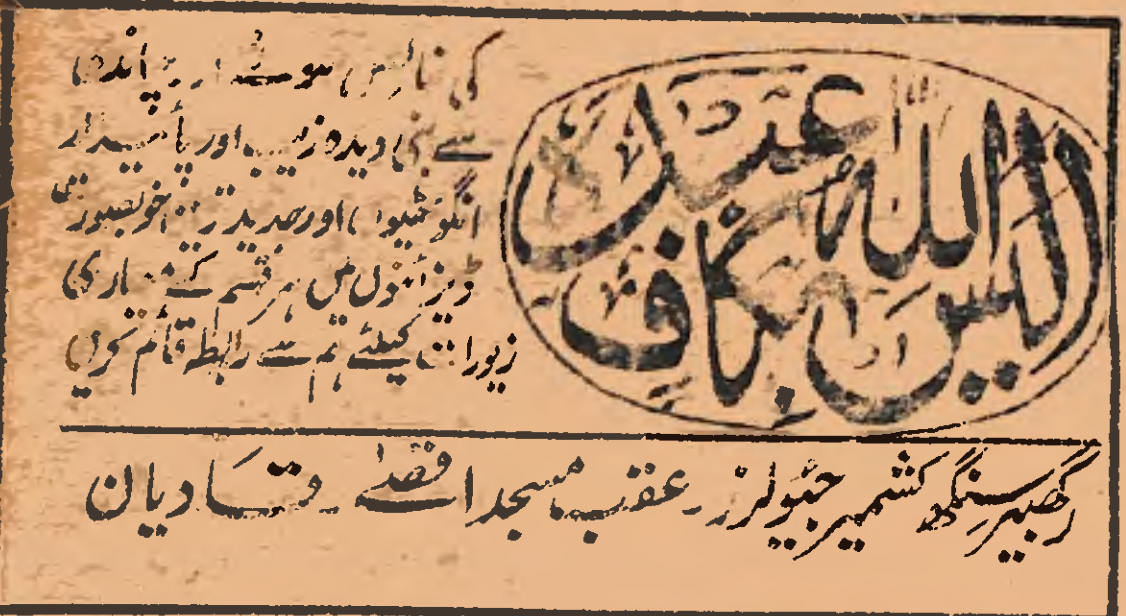 الیس اللہ بکاف عبدہ
کی خالص سونے اور چاندی
سے بنی دیدہ زیب اور پائیدار
انگوٹھیوں اور جدید ترین خوبصورت
ڈیزائنوں میں ہر قسم کے تیار کی
زیورات کیلئے ہم سے رابطہ قائم کریں
رگھبیر سنگھ کشمیر جیولرز عقب مسجد اقصےٰ قادیان